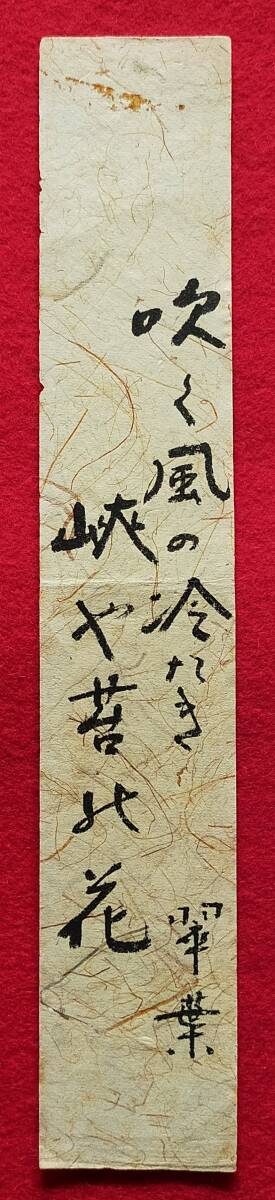 吹く風の冷たき
峽や苔の花
翠葉